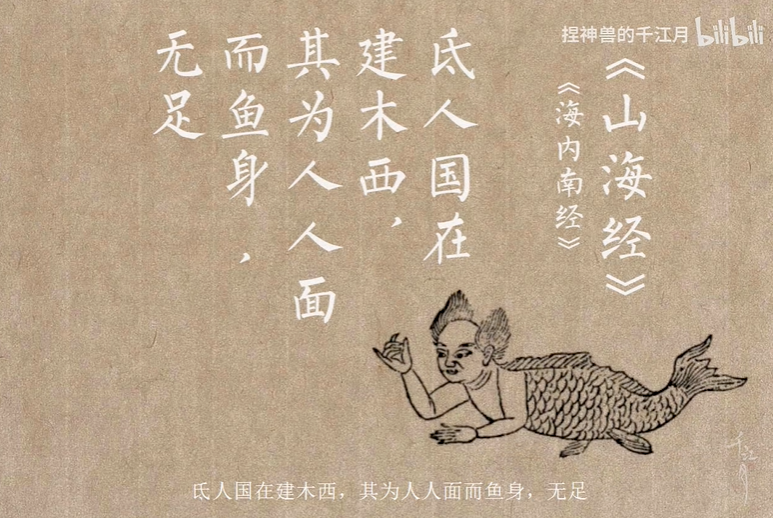 捏神兽的千江月 bilibili
《山海经》
《海内南经》
氐人国在
建木西，
其为人人面
而鱼身，
无足
千江月
氐人国在建木西，其为人人面而鱼身，无足